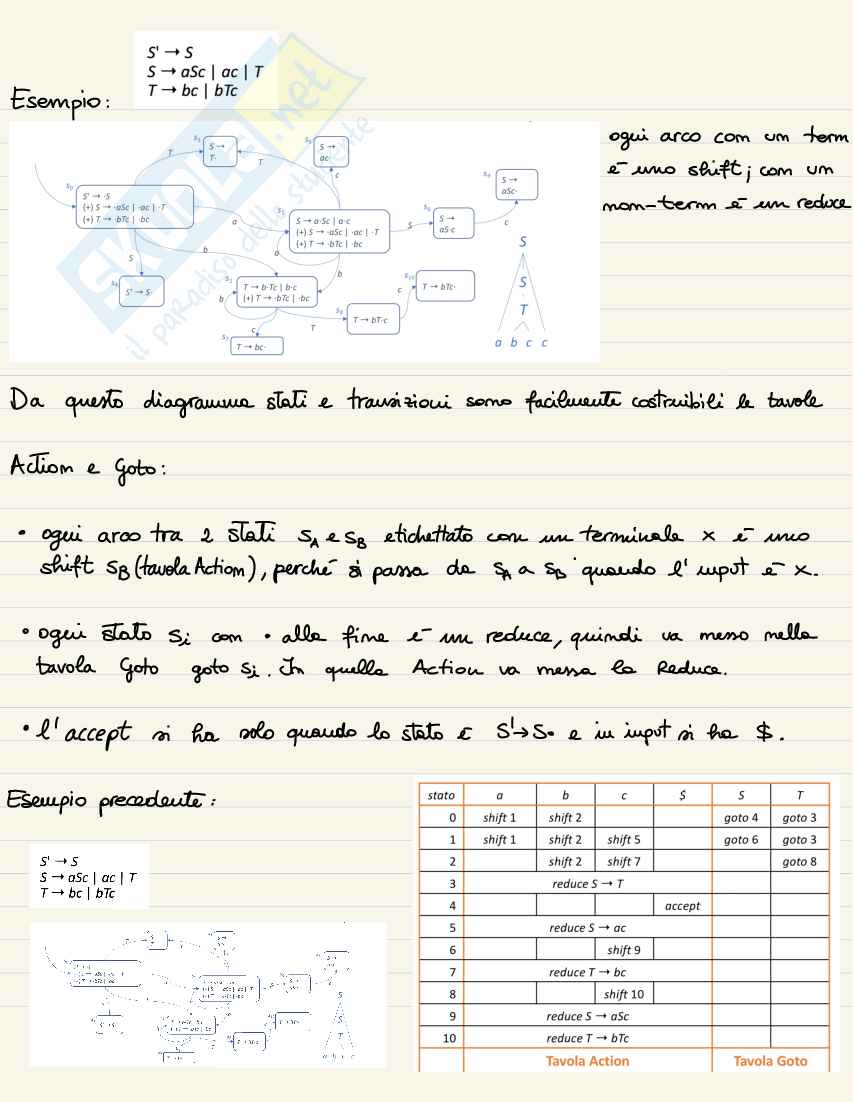 S' → S
S → aSc | ac | T
T → bc | bTc
Esempio:
ogni arco con un term
è uno shift; con un
non-term è un reduce
S → T·
S → ac·
S → aSc·
S' → ·S
(+) S → ·aSc | ·ac | ·T
(+) T → ·bTc | ·bc
S → a·Sc | a·c
(+) S → ·aSc | ·ac | ·T
(+) T → ·bTc | ·bc
S → aS·c
S' → S·
T → b·Tc | b·c
(+) T → ·bTc | ·bc
T → bTc·
T → bT·c
T → bc·
S
S
T
a b c c
SKUOLA.net
il paradiso dello studente
Da questo diagramma stati e transizioni sono facilmente costruibili le tavole
Action e Goto:
• ogni arco tra 2 stati SA e SB etichettato con un terminale x è uno
shift SB (tavola Action), perché si passa da SA a SB quando l'input è x.
• ogni stato Si con • alla fine è un reduce, quindi va messo nella
tavola Goto goto Si. In quella Action va messa la Reduce.
• l'accept si ha solo quando lo stato è S'→S• e in input si ha $.
Esempio precedente:
S' → S
S → aSc | ac | T
T → bc | bTc
stato a b c $ S T
0 shift 1 shift 2 goto 4 goto 3
1 shift 1 shift 2 shift 5 goto 6 goto 3
2 shift 2 shift 7 goto 8
3 reduce S → T
4 accept
5 reduce S → ac
6 shift 9
7 reduce T → bc
8 shift 10
9 reduce S → aSc
10 reduce T → bTc
Tavola Action Tavola Goto